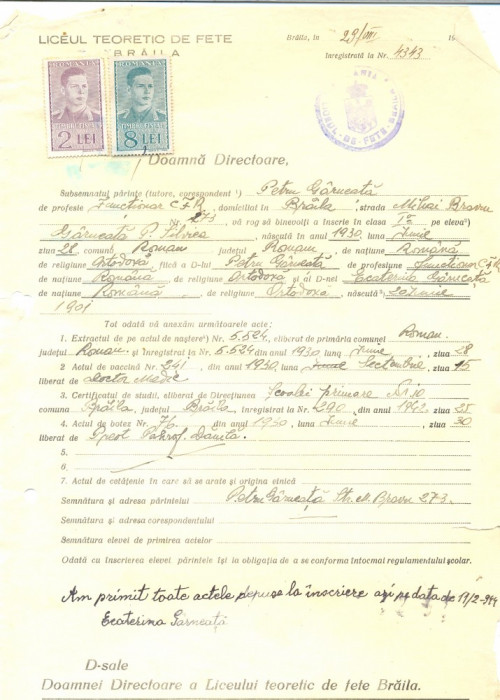 LICEUL TEORETIC DE FETE
BRĂILA
Brăila, în 29/VIII 19
Înregistrată la Nr. 4343
ROMANIA ROMANIA
TIMBRU FISCAL TIMBRU FISCAL
2 LEI 8 LEI
LICEUL DE FETE BRĂILA
Doamnă Directoare,
Subsemnatul părinte (tutore, corespondent ¹) Petru Gârneată
de profesie Funcționar C.F.R., domiciliat în Brăila, strada Mihai Bravu
Nr. 273, vă rog să binevoiți a înscrie în clasa I-a pe eleva²)
Gârneată P. Silvica, născută în anul 1930, luna Iunie
ziua 28, comuna Roman județul Roman, de națiune Română
de religiune Ortodoxă, fiică a D-lui Petru Gârneată de profesiune Funcționar C.F.R.
de națiune Română, de religiune Ortodoxă și a D-nei Ecaterina Gârneață
de națiune Română, de religiune Ortodoxă, născută 20 Iunie
1901
Tot odată vă anexăm următoarele acte:
1. Extractul de pe actul de naștere³) Nr. 5.524, eliberat de primăria comunei Roman.
județul Roman. și înregistrat la Nr. 5.524 din anul 1930, luna Iunie, ziua 28
2 Actul de vaccină Nr. 241, din anul 1930, luna Iunie Septembrie, ziua 15
liberat de Doctor
3. Certificatul de studii, sliberat de Direcțiunea Școalei primare Nr 10
comuna Brăila, județul Brăila, înregistrat la Nr. 290, din anul 1942, ziua 25
4. Actul de botez Nr. 76. din anul 1930, luna Iunie, ziua 30
liberat de Preot Danila.
5.
6.
7. Actul de cetățenie în care să se arate și origina etnică
Semnătura și adresa părintelui Petru Gârneață Str. M. Bravu 273.
Semnătura și adresa corespondentului
Semnătura elevei de primirea actelor
Odată cu înscrierea elevei părintele își ia obligația de a se conforma întocmai regulamentului școlar.
Am primit toate actele depuse la înscriere azi pe data de 19/2-944
Ecaterina Gârneață
D-sale
Doamnei Directoare a Liceului teoretic de fete Brăila.